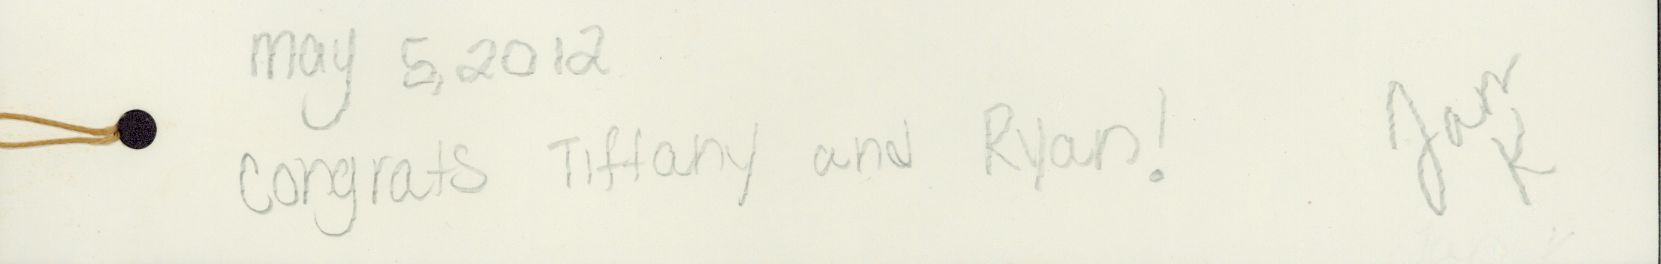 may 5, 2012
congrats Tiffany and Ryan!
Jan
K